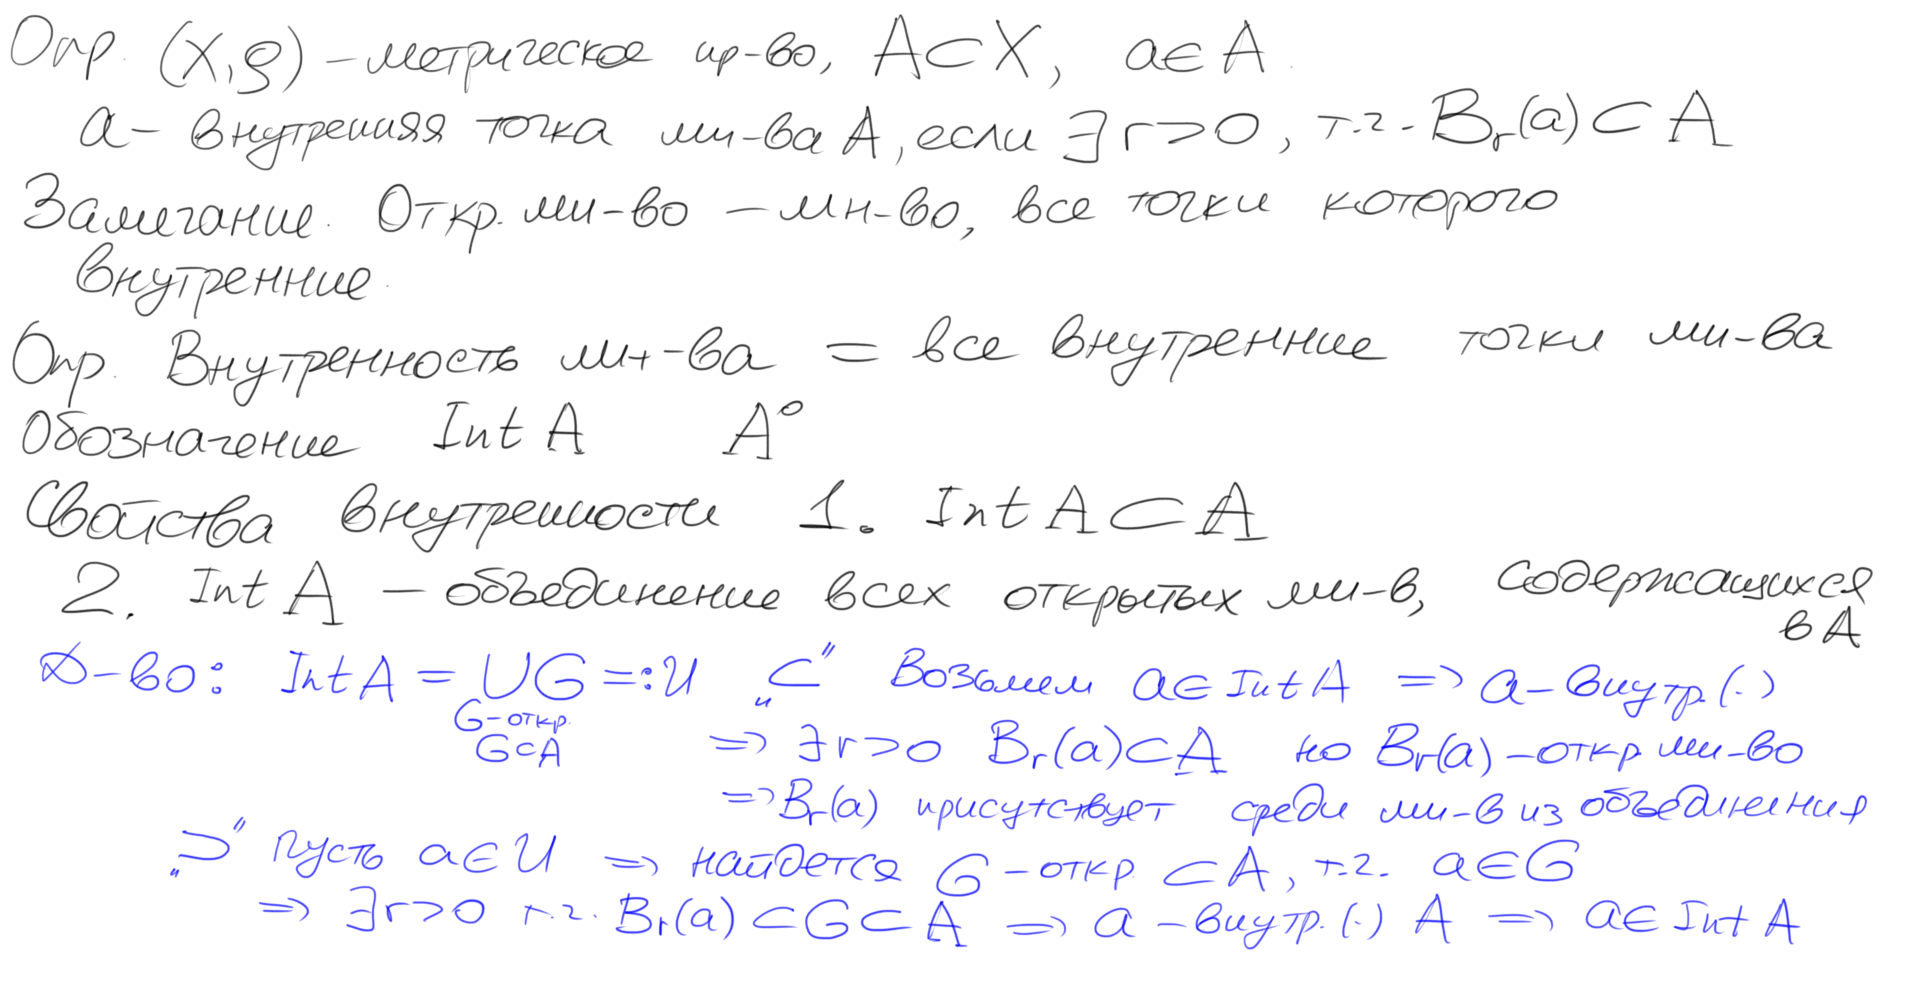 Опр. (X,ρ) – метрическое пр-во, A⊂X, a∈A.
a – внутренняя точка мн-ва A, если ∃r>0, т.ч. Bᵣ(a)⊂A
Замечание. Откр. мн-во – мн-во, все точки которого
внутренние.
Опр. Внутренность мн-ва = все внутренние точки мн-ва
Обозначение Int A A°
Свойства внутренности 1. Int A⊂A
2. Int A – объединение всех открытых мн-в, содержащихся
в A
Д-во: Int A = ∪G =: U „⊂“ Возьмем a∈Int A => a – внутр.(·)
G-откр.
G⊂A
=> ∃r>0 Bᵣ(a)⊂A но Bᵣ(a) – откр мн-во
=> Bᵣ(a) присутствует среди мн-в из объединения
„⊃“ Пусть a∈U => найдется G – откр ⊂A, т.ч. a∈G
=> ∃r>0 т.ч. Bᵣ(a)⊂G⊂A => a – внутр.(·) A => a∈Int A